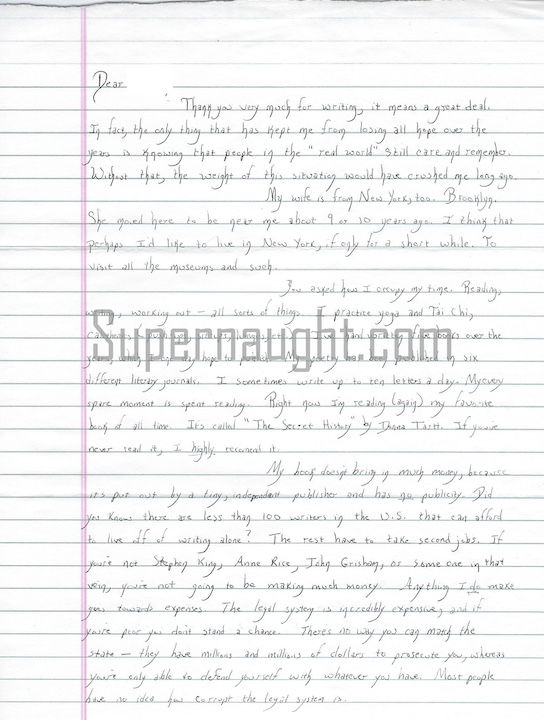 Dear
Thank you very much for writing, it means a great deal.
In fact, the only thing that has kept me from losing all hope over the
years is knowing that people in the "real world" still care and remember.
Without that, the weight of this situation would have crushed me long ago.
My wife is from New York, too. Brooklyn.
She moved here to be near me about 9 or 10 years ago. I think that
perhaps I'd like to live in New York, if only for a short while. To
visit all the museums and such.
You asked how I occupy my time. Reading,
writing, working out – all sorts of things. I practice yoga and Tai Chi,
I've hand written five books over the
Supernaught.com
years, which I one day hope to publish. My poetry has been published in six
different literary journals. I sometimes write up to ten letters a day. My every
spare moment is spent reading. Right now I'm reading (again) my favorite
book of all time. It's called "The Secret History" by Donna Tartt. If you've
never read it, I highly recomend it.
My book doesn't bring in much money, because
it's put out by a tiny, independent publisher and has no publicity. Did
you know there are less than 100 writers in the U.S. that can afford
to live off of writing alone? The rest have to take second jobs. If
you're not Stephen King, Anne Rice, John Grisham, or some one in that
vein, you're not going to be making much money. Anything I do make
goes towards expenses. The legal system is incredibly expensive, and if
you're poor you don't stand a chance. There's no way you can match the
state – they have millions and millions of dollars to prosecute you, whereas
you're only able to defend yourself with whatever you have. Most people
have no idea how corrupt the legal system is.